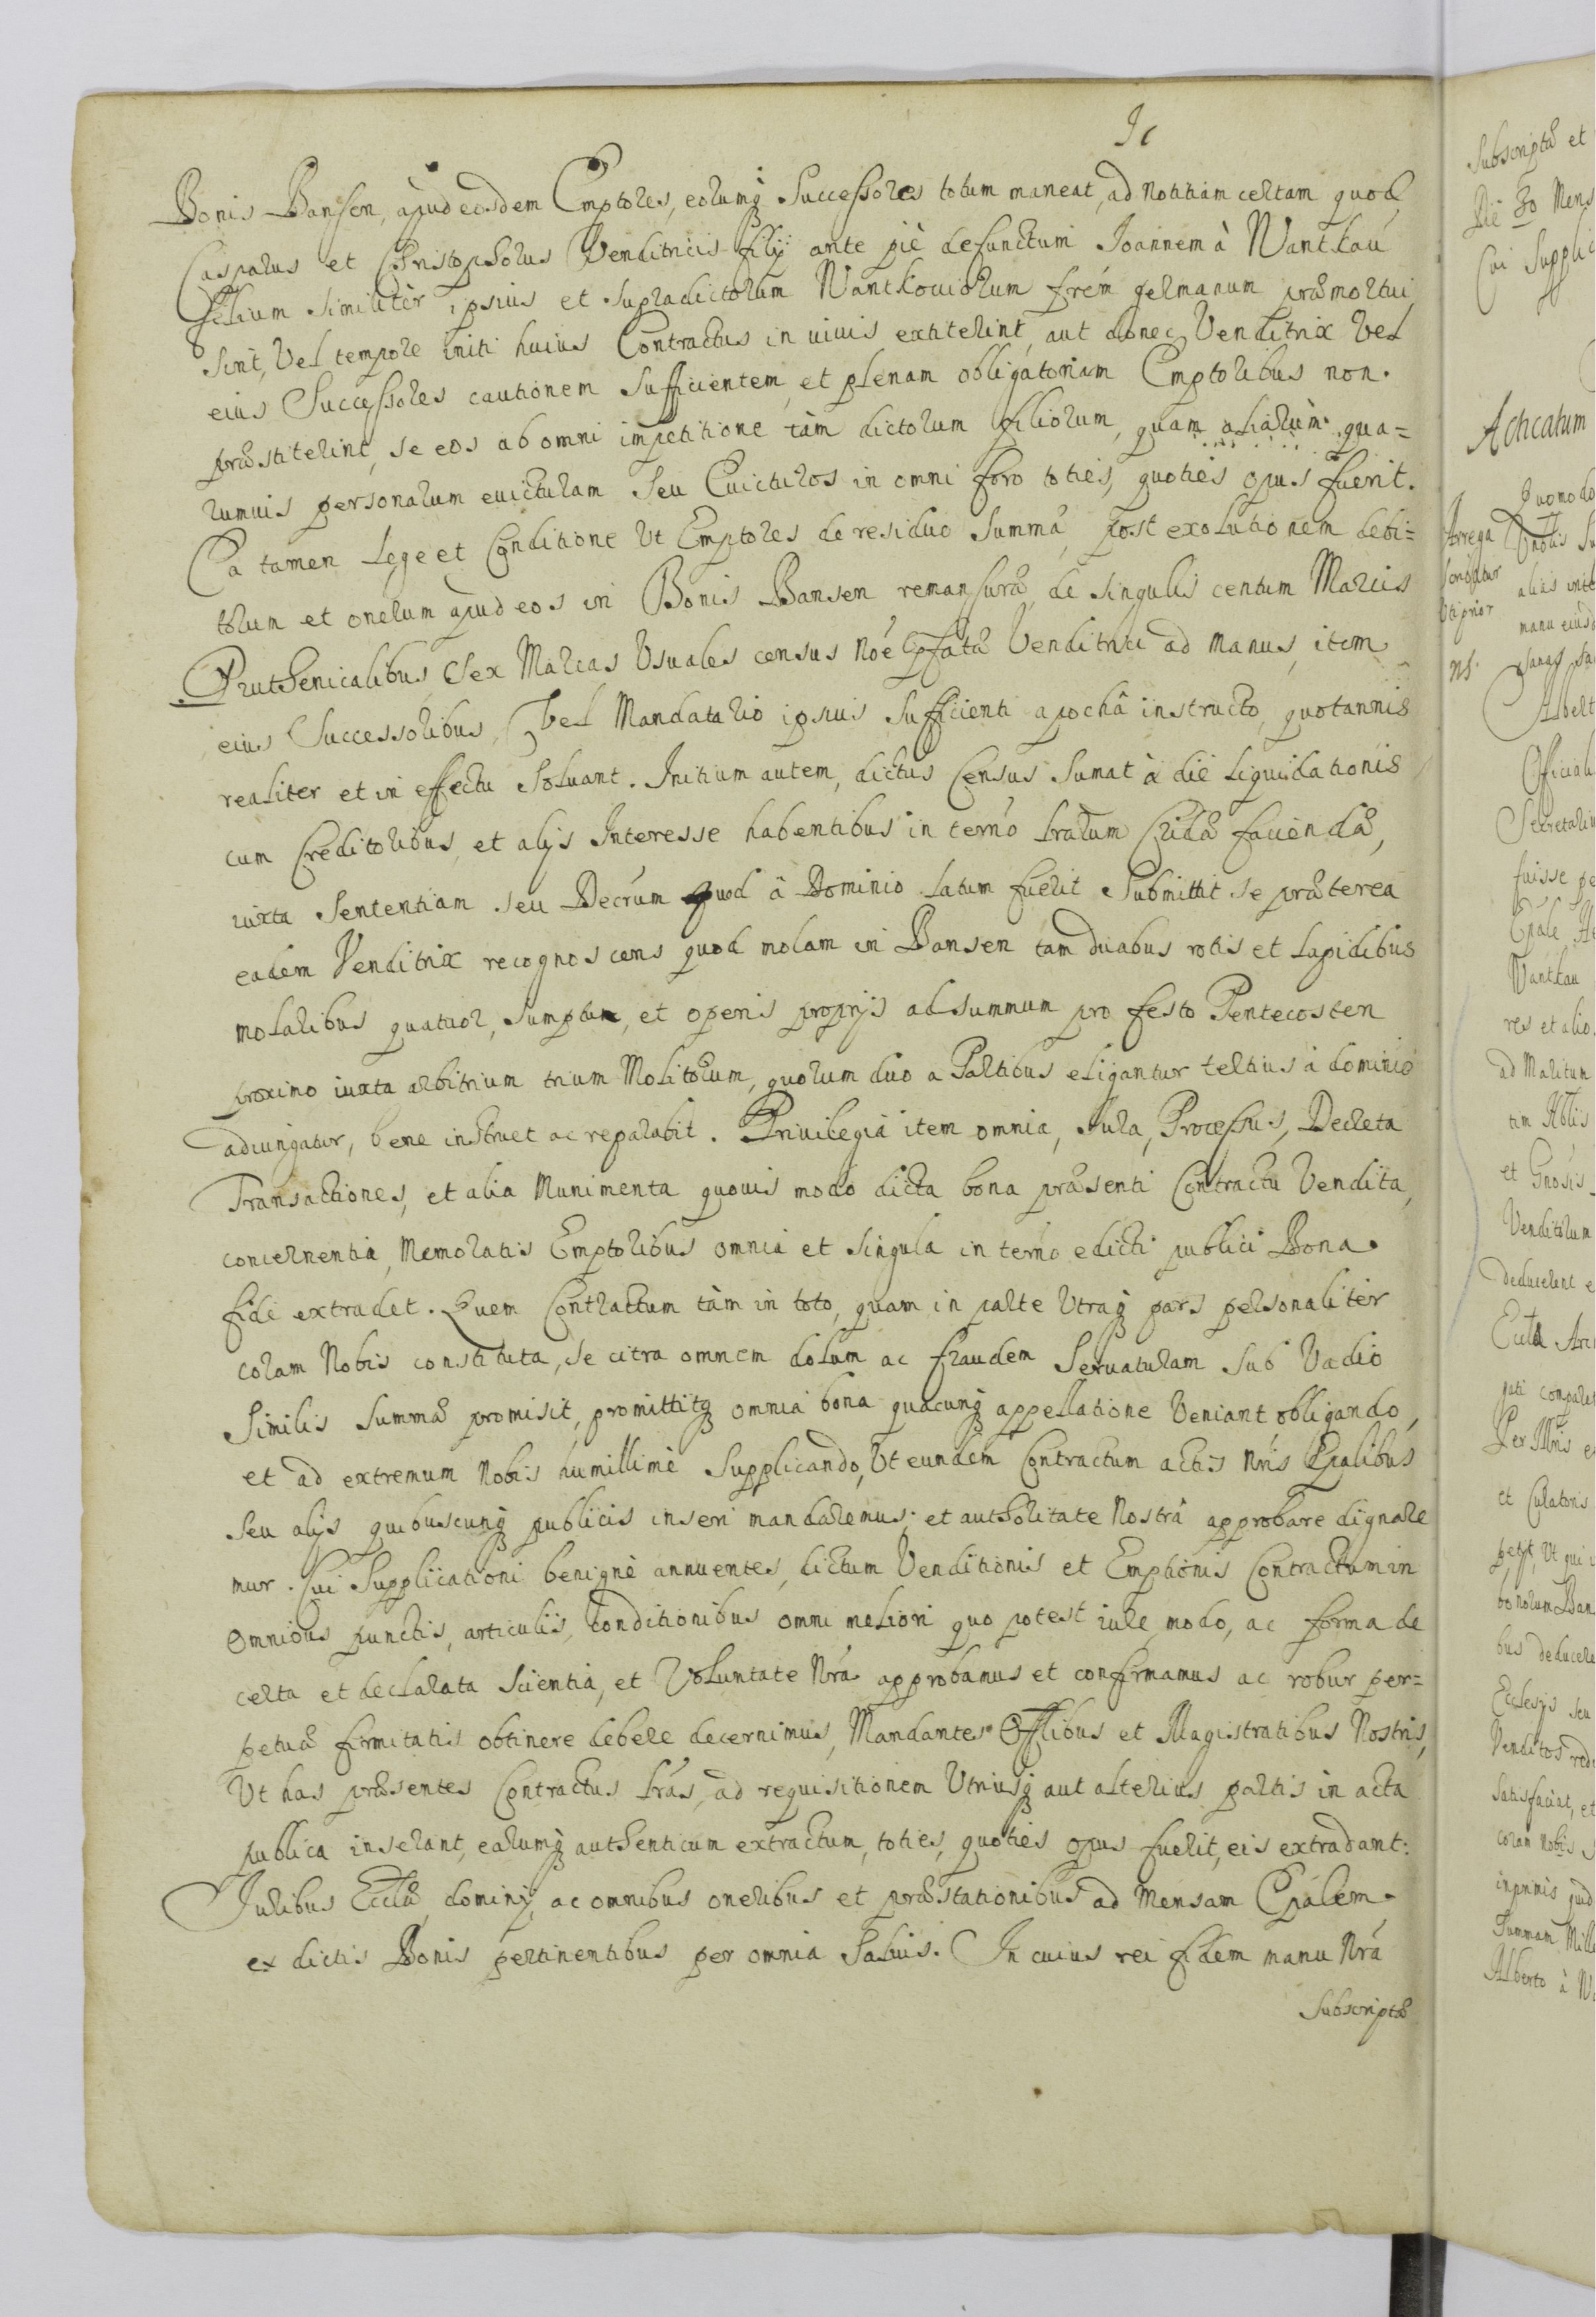 Bonis Bansen, apud eosdem Emptores, eorumq; Successores totum maneat, ad notitiam certam quod
Casparus et Christophorus Venditricis filij ante piè defunctum Joannem à Nantkau
filium similitèr ipsius et supradictorum Nantkouiorum frém germanum præmortui
sint, Vel tempore initi huius Contractus in uiuis extiterint, aut donec Venditrix Vel
eius Successores cautionem sufficientem, et plenam obligatoriam Emptoribus non
præstiterint, se eos ab omni impetitione tàm dictorum filiorum, quam aliarùm qua=
rumuis personarum euicturam seu Euicturos in omni foro toties, quoties opus fuerit.
Ea tamen Lege et Conditione Ut Emptores de residuo Summæ, post exolutionem debi=
torum et onerum apud eos in Bonis Bansen remansuræ, de singulis centum Marcis
Pruthenicalibus, Sex Marcas Usuales census nóe præfatæ Venditrici ad manus, item
eius Successoribus, Vel Mandatario ipsius sufficienti apochâ instructo, quotannis
realiter et in effectu soluant. Initium autem, dictus Census sumat à die liquidationis
cum Creditoribus, et alijs Interesse habentibus in terno lrarum Cridæ faciendæ,
iuxta Sententiam seu Decrúm quod â Dominio latum fuerit submittit se præterea
eadem Venditrix recognoscens quod molam in Bansen tam duabus rotis et lapidibus
molaribus quatuor, sumptu, et operis proprijs ad summum pro festo Pentecosten
proximo iuxta arbitrium trium Molitorum, quorum duo a Partibus eligantur tertius à dominio
adiungatur, bene instruet ac reparabit. Priuilegia item omnia, Jura, Processus, Decreta
Transactiones, et alia Munimenta quouis modo dicta bona præsenti Contractu Vendita,
concernentia, Memoratis Emptoribus omnia et singula in terno edicti publici Bona
fide extradet. Quem Contractum tàm in toto, quam in parte Utraq; pars personaliter
coram Nobis constituta, se citra omnem dolum ac fraudem Seruaturam sub Vadio
Similis Summæ promisit, promittitq; omnia bona quacunq; appellatione Veniant obligando,
et ad extremum Nobis humillimè Supplicando, Ut eundem Contractum actis Nris Epalibus
seu alijs quibuscunq; publicis inseri mandaremus; et authoritate Nostrâ approbare dignare
mur. Cui Supplicationi benignè annuentes, dictum Venditionis et Emptionis Contractum in
omnibus punctis, articulis, Conditionibus omni meliori quo potest iure, modo, ac forma de
certa et declarata scientia, et Voluntate Nrá approbamus et confirmamus ac robur per=
petuæ firmitatis obtinere debere decernimus, Mandantes Offlibus et Magistratibus Nostris,
Ut has præsentes Contractus lrás, ad requisitionem Utriusq; aut alterius partis in acta
publica inserant, earumq; authenticum extractum, toties, quoties opus fuerit, eis extradant:
Juribus Eccliæ, dominij, ac omnibus oneribus et præstationibus ad Mensam Epalem
ex dictis Bonis pertinentibus per omnia Saluis. In cuius rei fidem manu Nrá
Subscriptæ
Subscriptæ et
Die 30 Mens
Cui Supplic
Acticatum
Quomodo
scribatur
Uti prior
NS.
alias
manu eiusd
Albert
Official
Secretariu
fuisse pe
Epale
Nantkau
res et alio
ad Maritum
et Gnosis
Venditorum
deducerent e
et Curatoris
petijt, Ut qui
bonorum Ban
bus deducere
Ecclesijs seu
Satisfaciat, et
coram Nobis
inprimis
Summam Mille
Alberto à Na